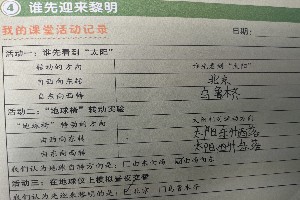 4 谁先迎来黎明
我的课堂活动记录 日期：
活动一：谁先看到“太阳”
转动的方向 谁先看到“太阳”
自西向东转 北京
自东向西转 乌鲁木齐
活动二：“地球桥”转动实验
“地球桥”转动的方向
自西向东转 太阳东升西落
自东向西转 太阳西升东落
我们认为地球自转方向是：
活动三：在地球仪上模拟昼夜变化
我们认为先迎来黎明的是：☑北京 □乌鲁木齐